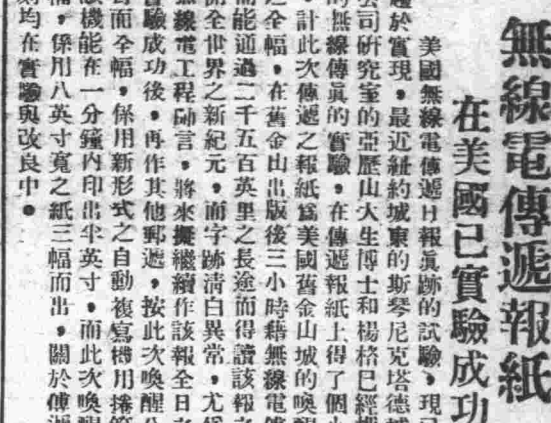 無線電傳遞報紙
在美國已實驗成功
美國無線電傳遞日報眞跡的試驗，現已
趨於實現，最近紐約城東的斯琴尼克塔德
公司研究室的亞歷山大生博士和楊格已經
的無線傳眞的實驗，在傳遞報紙上得了個
計此次傳遞之報紙爲美國舊金山城的喚醒
之全幅，在舊金山出版後三小時藉無線電傳
而能通過二千五百英里之長途而得讀該報之
開全世界之新紀元，而字跡清白異常，尤
無線電工程師言，將來擬繼續作該報全日之
實驗成功後，再作其他郵遞，按此次喚醒
面全幅，係用新形式之自動複寫機用捲筒
機能在一分鐘內印出半英寸，而此次喚醒
係用八英寸寬之紙三幅而出，關於傳遞
均在實驗與改良中。